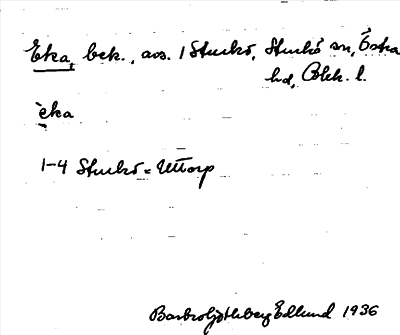 Eka, bek., avs. 1 Sturkö, Sturkö sn, Östra
hd, Blek. l.
èka
1-4 Sturkö = Uttorp
Barbro Götherberg Edlund 1936